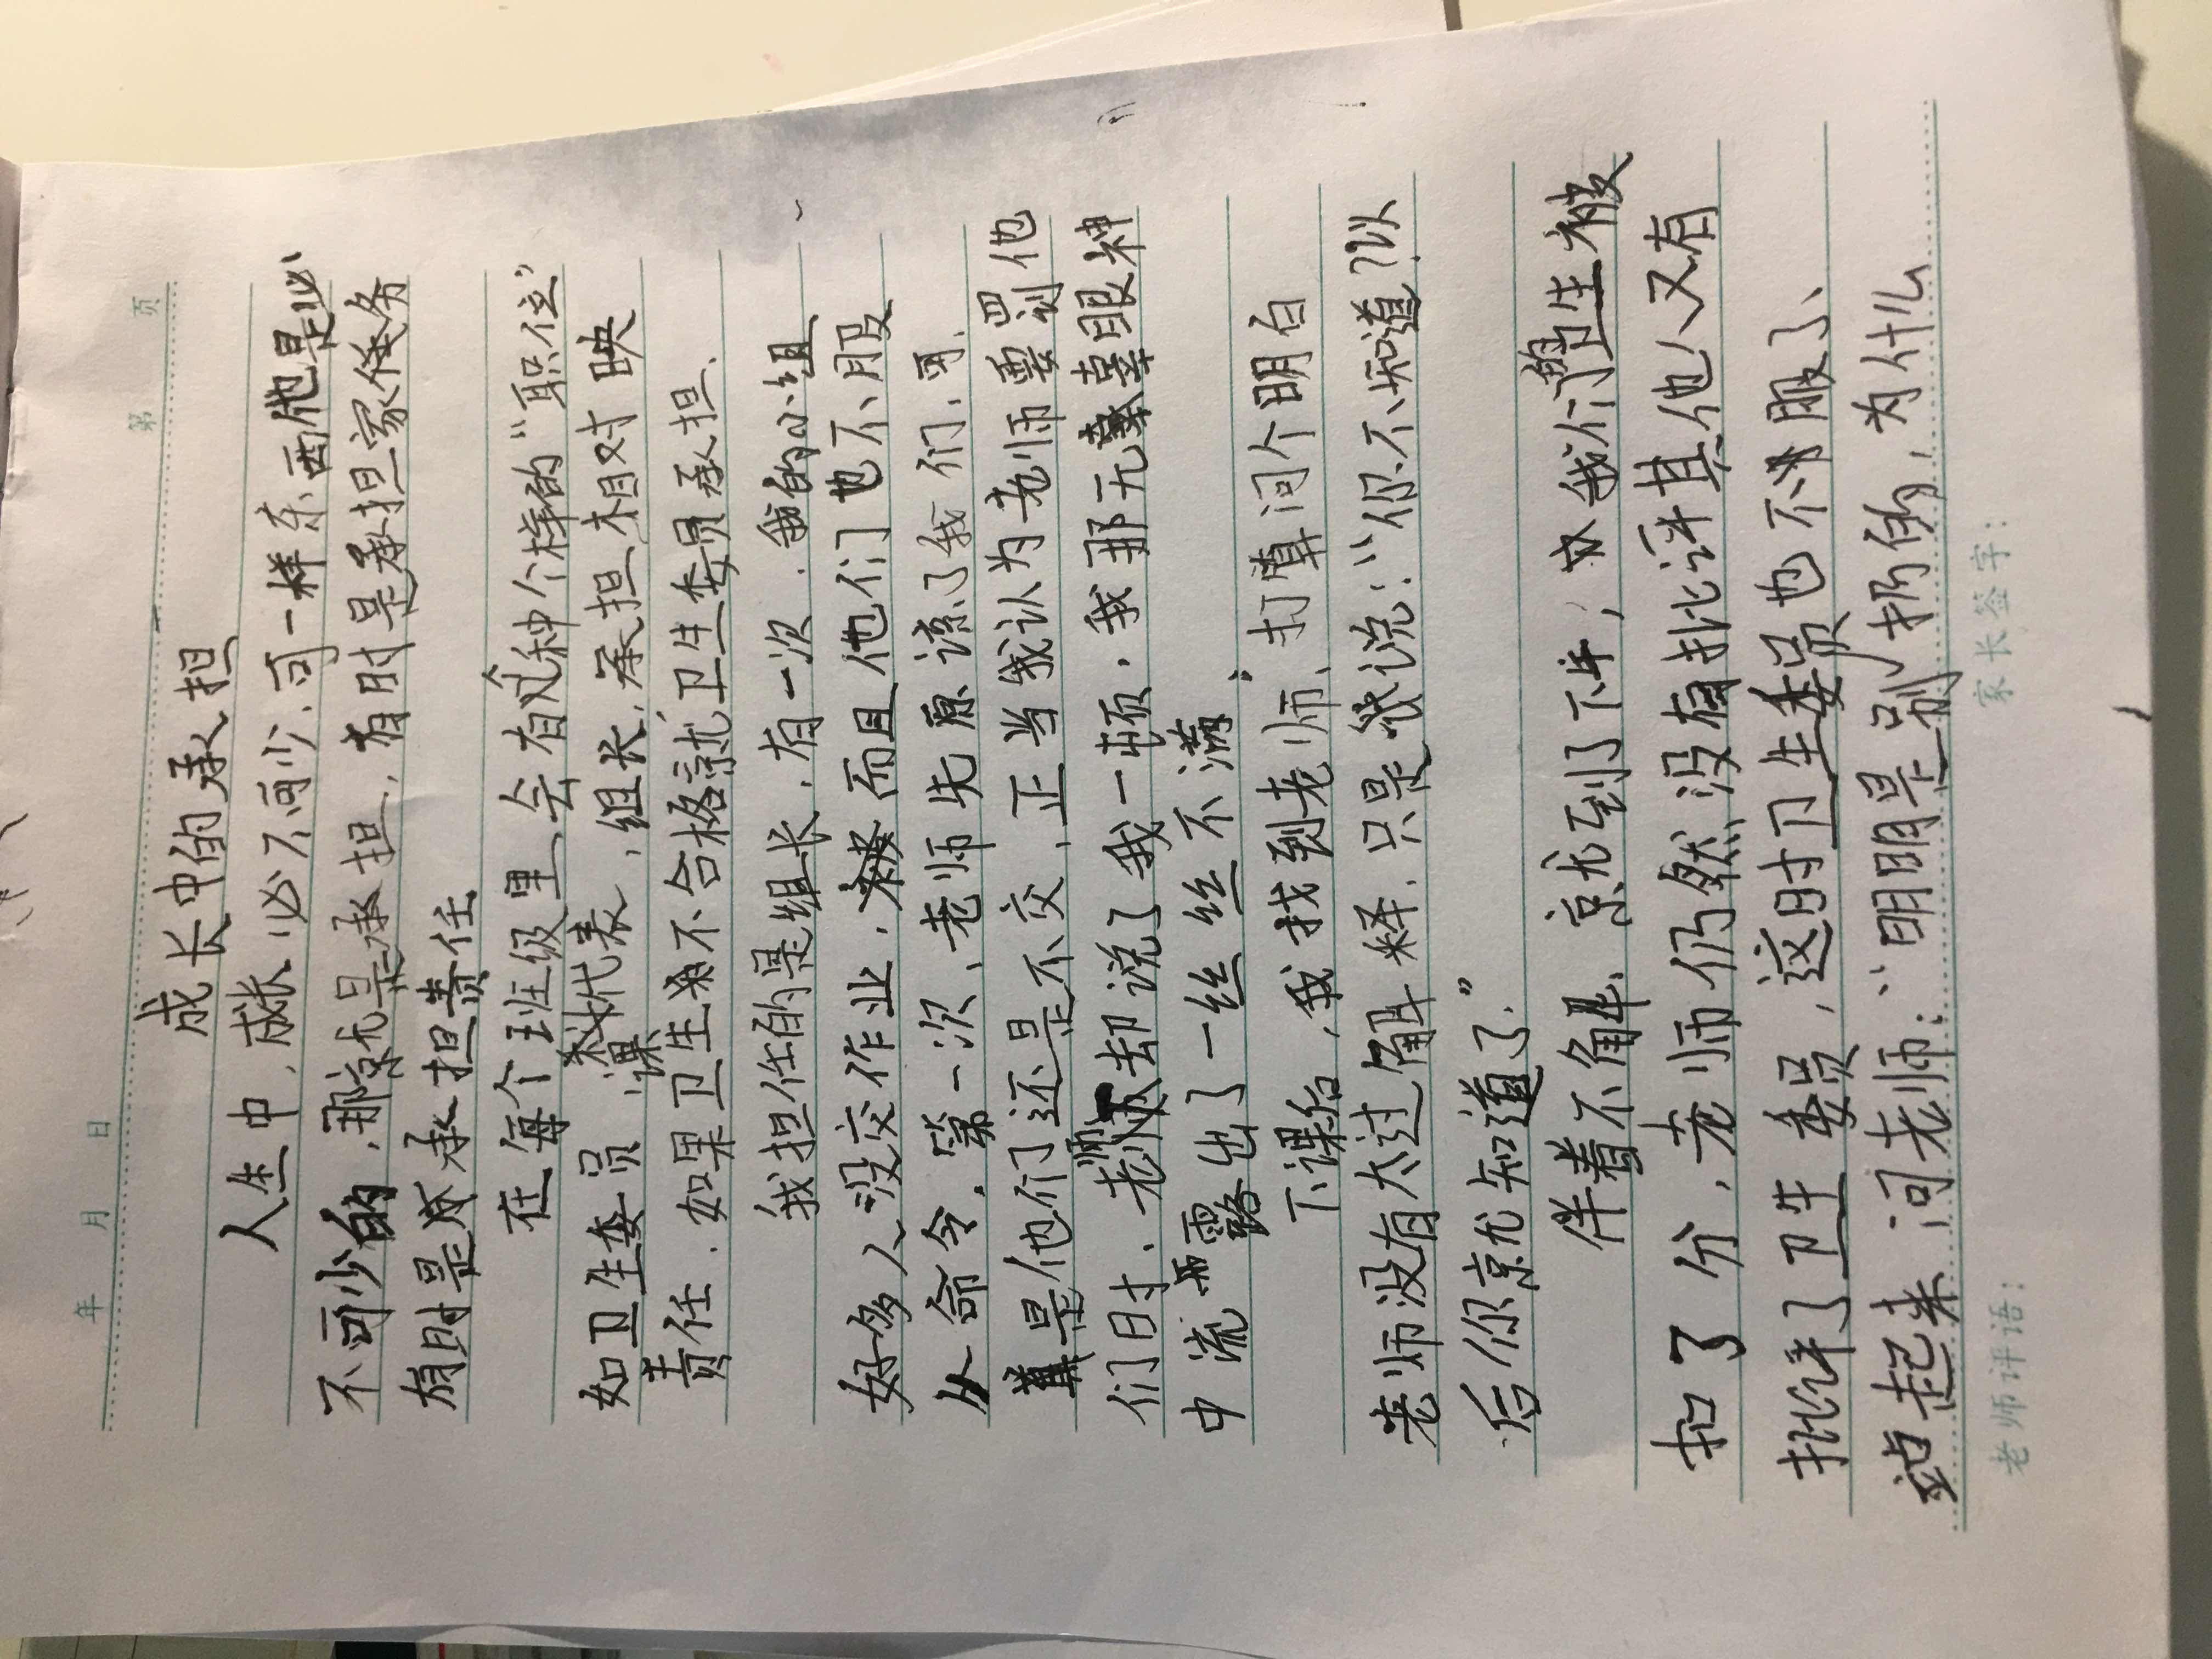 年 月 日 第 页
成长中的承担
人生中，成长必不可少，可一样东西他是必
不可少的，那就是承担，有时是承担家条务
有时是承担责任
在每个班级里，会有各种个样的“职位”
如卫生委员，课代表，组长，承担相对映
责任，如果卫生不合格就卫生委员承担．
我担任的是组长，有一次，我的小组
好多人没交作业，而且他们也不服
从命令．第一次、老师先原谅了我们，可，
是他们还是不交，正当我认为老师要罚他
们时、老师却说了我一顿．我那无辜眼神
中流露出了一丝丝不满”
下课后，我找到老师、打算问个明白
老师没有太过解释．只是说：“你不知道？以
后你就知道了．”
伴着不解、就到了下午，我们的卫生被
扣了分，老师仍然没有批评其他人又有
批评了卫生委员，这时卫生委员也不服了、
站起来问老师：“明明是别扔的，为什么
老师评语： 家长签字：